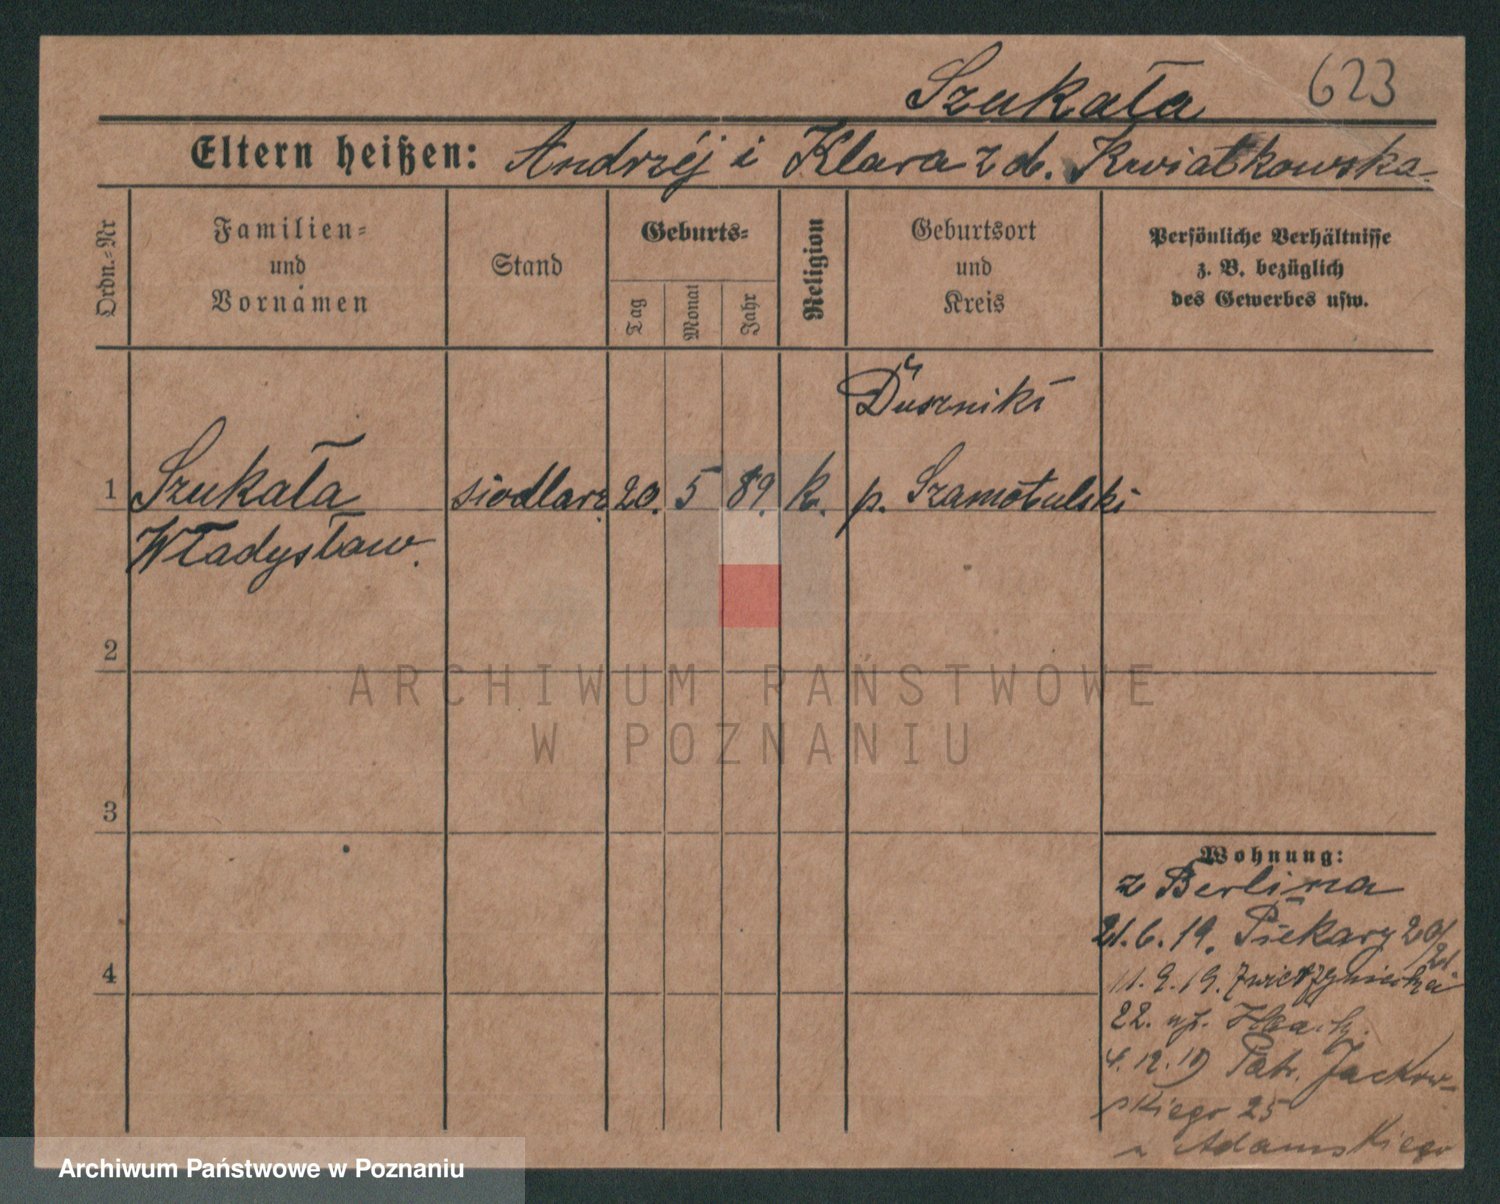 Szukała 623
Eltern heißen: Andrzéj i Klara z d. Kwiatkowska
Ordn.-Nr
Familien-
und
Vornamen
Stand
Geburts-
Tag
Monat
Jahr
Religion
Geburtsort
und
Kreis
Persönliche Verhältnisse
z. B. bezüglich
des Gewerbes usw.
Duszniki
1 Szukała siodlarz 20. 5 89. k. p. Szamotulski
Władysław.
2
3
4
Wohnung:
z Berlina
21.6.19. Piekary 20/
/21.
11.9.19. Zwierzyniecka
22.
4.12.19 Patr. Jackow-
skiego 25
Adamskiego
ARCHIWUM PAŃSTWOWE
W POZNANIU
Archiwum Państwowe w Poznaniu